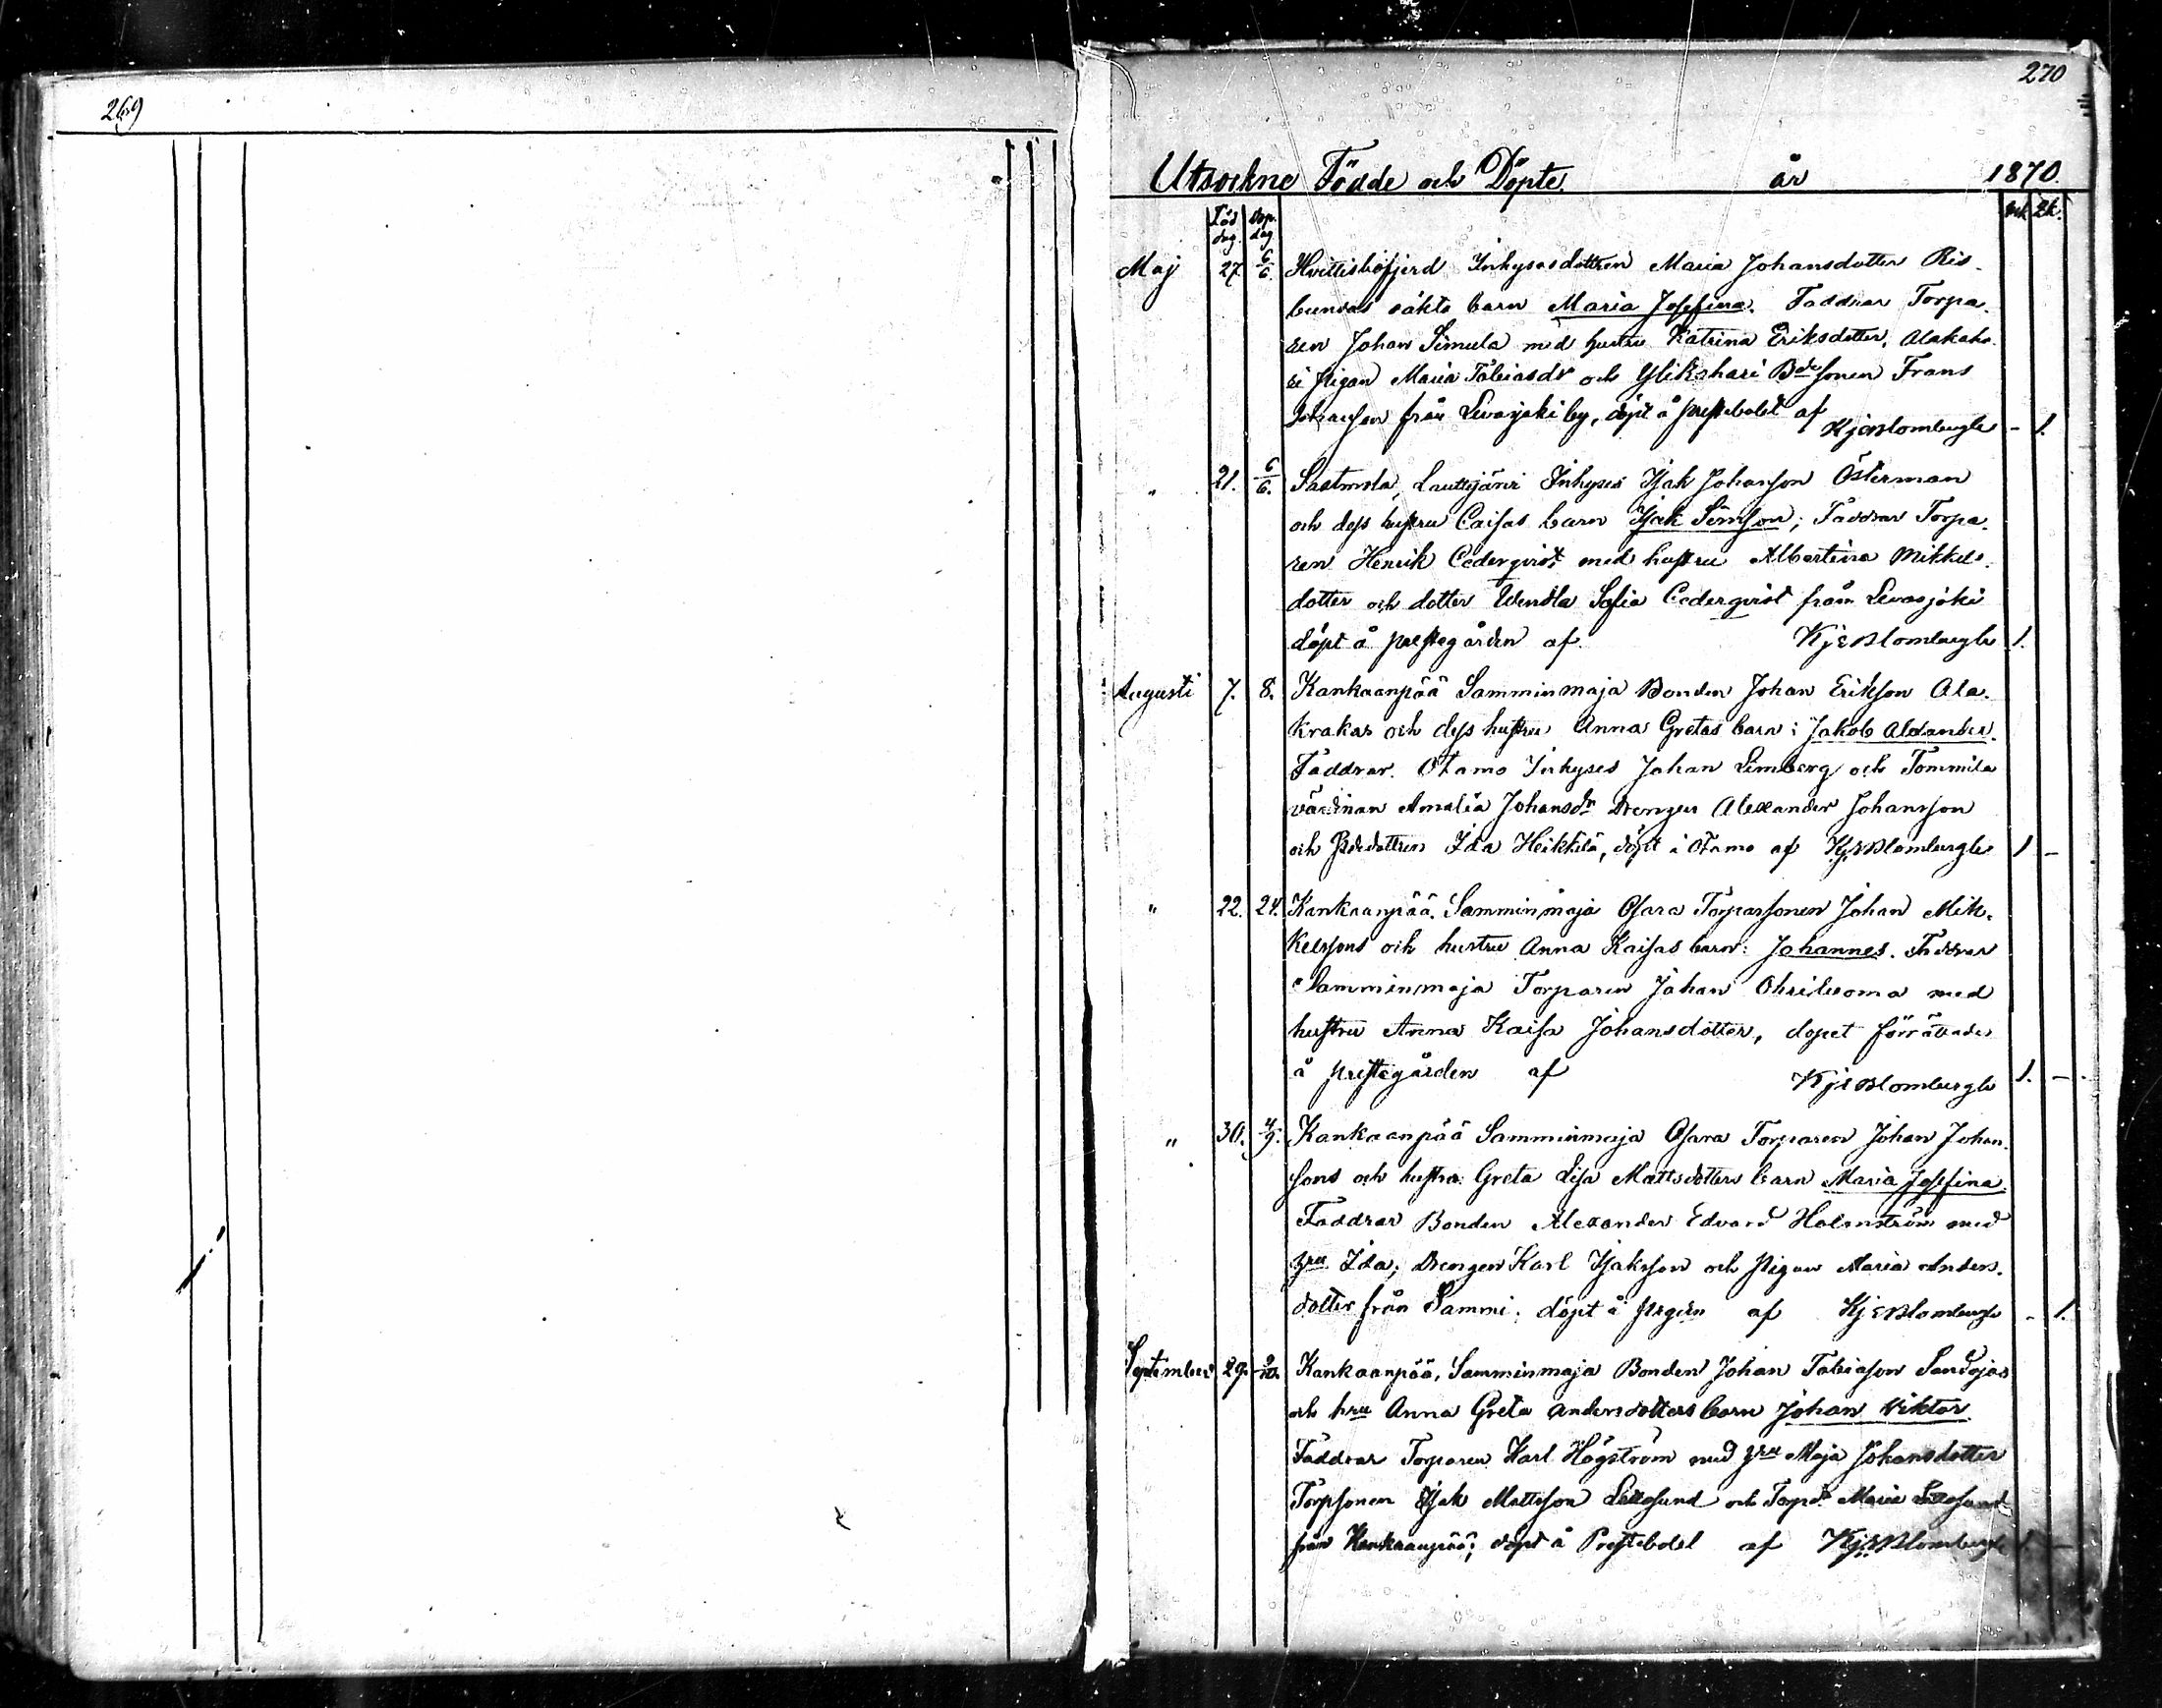 269
270
Utsockne Födde och Döpte år 1870.
Föd dag. Dop. dag Mk Qk.
Maj 27. 6/6. Hvittisbofjerd Inhysesdottren Maria Johansdotter Ris-
oäkta barn Maria Josefina. Faddrar Torpa-
ren Johan Simula med hustru Katrina Eriksdotter, Alakaha-
ri Pigan Maria Tobiasdr och Ylikahari Bdesonen Frans
Johansson från Levasjoki by, döpt å prestebolet af
KjEBlombergh - 1.
" 21. 6/6. Sastmola, Lauttijärvi Inhyses Isak Johansson Österman
och dess hustru Caisas barn Isak Simson; Faddrar Torpa-
ren Henrik Cederqvist med hustru Albertina Mikkels-
dotter och dotter Wendla Sofia Cederqvist från Levasjoki
döpt å prestegården af KjEBlombergh 1.
Augusti 7. 8. Kankaanpää Samminmaja Bonden Johan Erikson Ala-
krakas och dess hustru Anna Gretas barn: Jakob Alexander.
Faddrar. Otamo Inhyses Johan Lemberg och Tommila
värdinan Amalia Johansdr Drengen Alexander Johansson
och Bdedottren Ida Heikkilä, döpt i Otamo af KjEBlombergh 1 -
" 22. 24. Kankaanpää, Samminmaja Osara Torparsonen Johan Mik-
kelssons och hustru Anna Kaisas barn: Johannes. Faddrar
Samminmaja Torparen Johan Ohriluoma med
hustru Anna Kaisa Johansdotter, dopet förrättades
å prestegården af KjEBlombergh 1. -
" 30. 4/9. Kankaanpää Samminmaja Osara Torparen Johan Johan-
sons och hustru Greta Lisa Mattsdotters barn Maria Josefina.
Faddrar Bonden Alexander Edvard Holmström med
hru Ida, Drengen Karl Isaksson och Pigan Maria Anders-
dotter från Sammi; döpt å af KjEBlombergh - 1.
September 29. 2/10. Kankaanpää, Samminmaja Bonden Johan Tobiason Sandojas
och hru Anna Greta Andersdotters barn Johan Viktor.
Faddrar Torparen Karl Högström med hru Maja Johansdotter
Torpsonen Isak Mattsson och Torpd Maria
från Kankaanpää; döpt å Prestebolet af KjEBlombergh 1 -